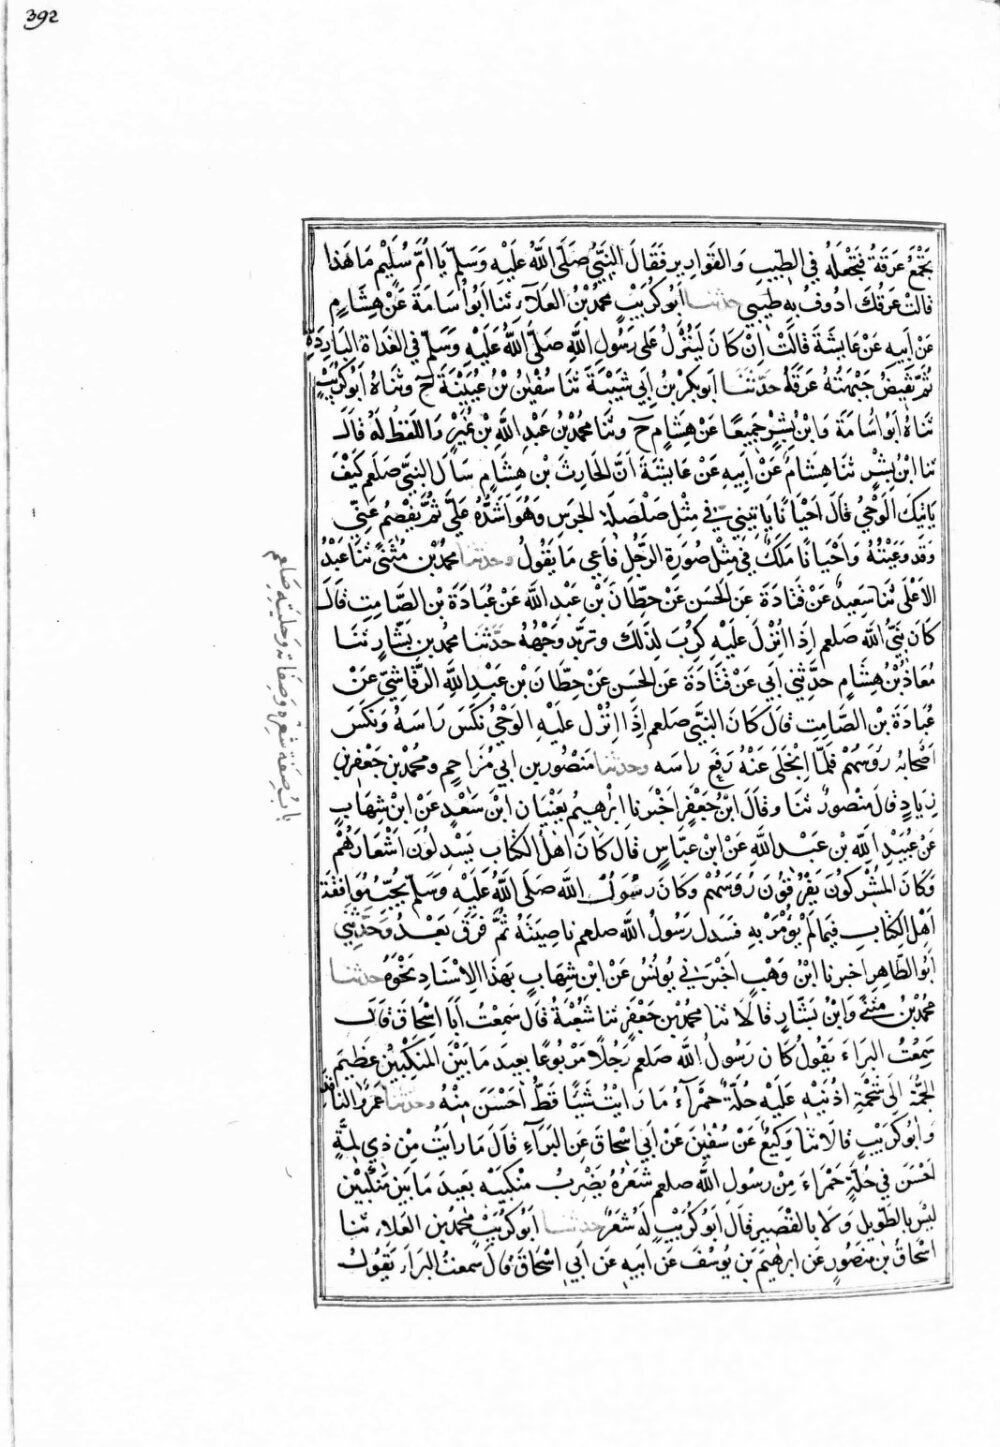 392
تجمع عرقه فتجعله في الطيب والقوارير فقال النبي صلى الله عليه وسلم يا ام سليم ما هذا
قالت عرقك ادوف به طيبي حدثنا ابو كريب محمد بن العلاء ثنا ابو اسامة عن هشام
عن ابيه عن عايشة قالت ان كان لينزل على رسول الله صلى الله عليه وسلم في الغداة الباردة
ثم تفيض جبهته عرقه حدثنا ابو بكر بن ابي شيبة ثنا سفين بن عيينة ح وثناه ابو كريب
ثناه ابو اسامة وابن بشر جميعا عن هشام ح وثنا محمد بن عبد الله بن نمير واللفظ له قال
ثنا ابن بشر ثنا هشام عن ابيه عن عايشة ان الحارث بن هشام سال النبي صلعم كيف
ياتيك الوحي قال احيانا ياتيني في مثل صلصلة الجرس وهو اشده علي ثم يفصم عني
وقد وعيته واحيانا ملك في مثل صورة الرجل فاعي ما يقول وحدثنا محمد بن مثنى ثنا عبد
الاعلى ثنا سعيد عن قتادة عن الحسن عن حطان بن عبد الله عن عبادة بن الصامت قال
كان نبي الله صلعم اذا انزل عليه كرب لذلك وتربد وجهه حدثنا محمد بن بشار ثنا
معاذ بن هشام حدثني ابي عن قتادة عن الحسن عن حطان بن عبد الله الرقاشي عن
عبادة بن الصامت قال كان النبي صلعم اذا انزل عليه الوحي نكس راسه ونكس
اصحابه روسهم فلما انجلى عنه رفع راسه وحدثنا منصور بن ابي مزاحم ومحمد بن جعفر بن
زياد قال منصور ثنا وقال ابن جعفر اخبرنا ابرهيم يعنيان ابن سعد عن ابن شهاب
عن عبيد الله بن عبد الله عن ابن عباس قال كان اهل الكتاب يسدلون اشعارهم
وكان المشركون يفرقون روسهم وكان رسول الله صلى الله عليه وسلم يحب موافقة
اهل الكتاب فيما لم يومر به فسدل رسول الله صلعم ناصيته ثم فرق بعد وحدثني
ابو الطاهر اخبرنا ابن وهب اخبرني يونس عن ابن شهاب بهذا الاسناد نحوه حدثنا
محمد بن مثنى وابن بشار قالا ثنا محمد بن جعفر ثنا شعبة قال سمعت ابا اسحاق قال
سمعت البراء يقول كان رسول الله صلعم رجلا مربوعا بعيد ما بين المنكبين عظيم
الجمة الى شحمة اذنيه عليه حلة حمراء ما رايت شيا قط احسن منه وحدثنا عمرو الناقد
وابو كريب قالا ثنا وكيع عن سفين عن ابي اسحاق عن البراء قال ما رايت من ذي لمة
احسن في حلة حمراء من رسول الله صلعم شعره يضرب منكبيه بعيد ما بين منكبين
ليس بالطويل ولا بالقصير قال ابو كريب له شعر حدثنا ابو كريب محمد بن العلاء ثنا
اسحاق بن منصور عن ابرهيم بن يوسف عن ابيه عن ابي اسحاق قال سمعت البراء يقول
باب صفة شعره وصفاته وحليته صلعم